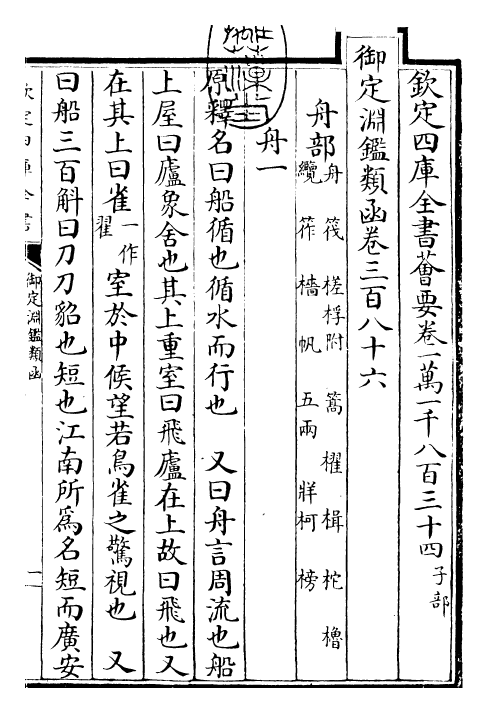 欽定四庫全書薈要卷一萬一千八百三十四 子部
御定淵鑑類函卷三百八十六
舟部 舟 筏 槎桴附 篙 櫂 楫 柁 櫓
纜 筰 檣 帆 五兩 牂柯 榜
舟一
原釋名曰船循也循水而行也 又曰舟言周流也船
上屋曰廬象舍也其上重室曰飛廬在上故曰飛也又
在其上曰雀一作翟室於中候望若鳥雀之驚視也 又
曰船三百斛曰刀刀貂也短也江南所爲名短而廣安
欽定四庫全書
御定淵鑑類函
一